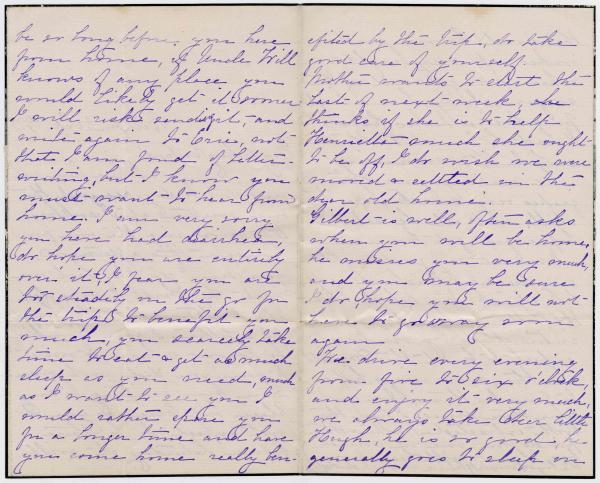 be so long before you hear
from home, if Uncle Will
knows of any place you
would likely get it sooner
I will risk sending it, and
write again to Erie, not
that I am fond of letter
writing, but I know you
must want to hear from
home. I am very sorry
you have had diarrhea,
do hope you are entirely
over it, I fear you are
too steadily on the go for
the trip to benefit you
much, you scarcely take
time to eat & get as much
sleep as you need, much
as I want to see you I
would rather spare you
for a longer time and have
you come home really ben-
efited by the trip, do take
good care of yourself.
Mother wants to start the
last of next week, she
thinks if she is to help
Henrietta much she ought
to be off, I do wish we were
moved & settled in the
dear old home.
Gilbert is well, often asks
when you will be home,
he misses you very much,
and you may be sure
I do hope you will not
have to go away soon
again
We drive every evening
from five to six o'clock,
and enjoy it very much,
we always take dear little
Hugh, he is so good, he
generally goes to sleep on